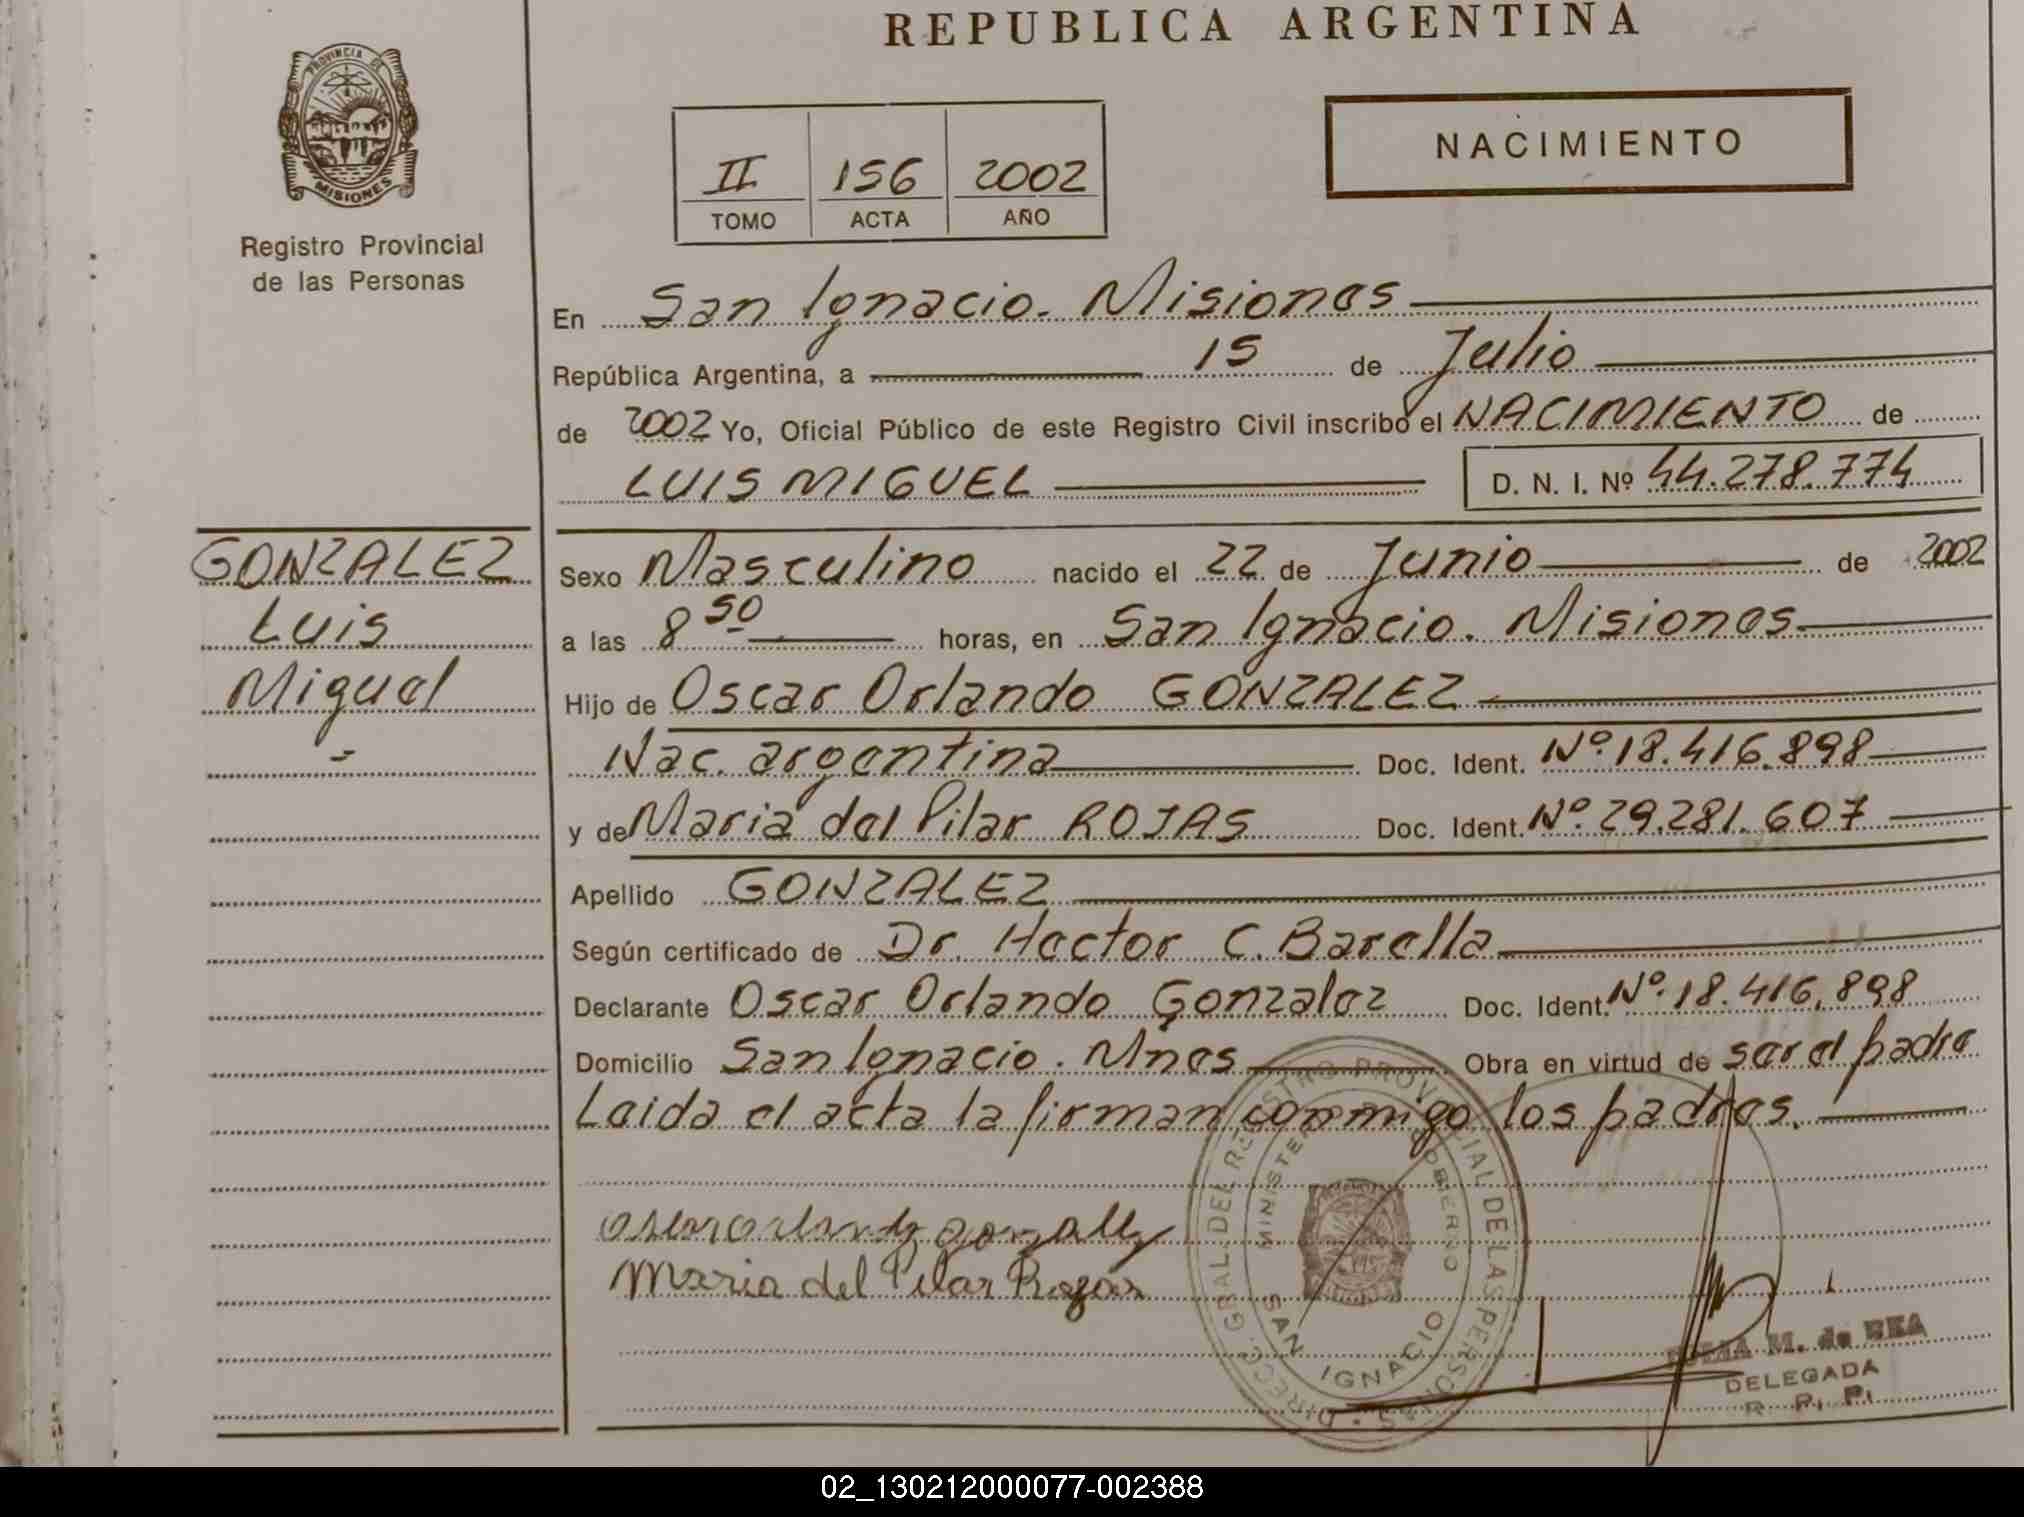 REPUBLICA ARGENTINA
PROVINCIA DE
MISIONES
Registro Provincial
de las Personas
II 156 2002
TOMO ACTA AÑO
NACIMIENTO
En San Ignacio. Misiones
República Argentina, a 15 de Julio
de 2002 Yo, Oficial Público de este Registro Civil inscribo el NACIMIENTO de
LUIS MIGUEL D. N. I. Nº 44.278.774
GONZALEZ
Luis
Miguel
Sexo Masculino nacido el 22 de Junio de 2002
a las 8 50 horas, en San Ignacio. Misiones
Hijo de Oscar Orlando GONZALEZ
Nac. argentina Doc. Ident. Nº. 18.416.898
y de Maria del Pilar ROJAS Doc. Ident. Nº. 29.281.607
Apellido GONZALEZ
Según certificado de Dr. Hector C. Barella
Declarante Oscar Orlando Gonzalez Doc. Ident. Nº. 18.416.898
Domicilio San Ignacio. Mnes Obra en virtud de ser el padre
Leida el acta la firman conmigo los padres.
Maria del Pilar Rojas
DIRECC. GRAL. DEL REGISTRO PROVINCIAL DE LAS PERSONAS
MINISTERIO DE GOBIERNO
SAN IGNACIO
M. de REA
DELEGADA
R. P. P.
02_130212000077-002388